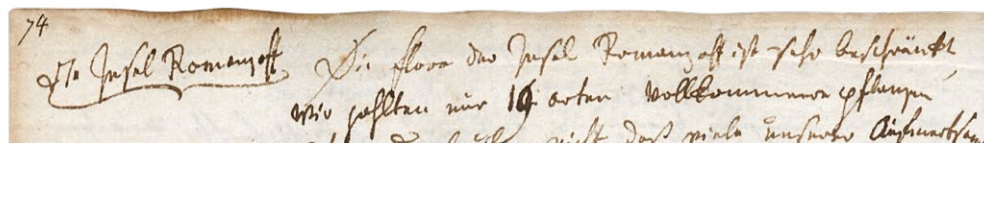 74
Die Insel Romanzoff
Die flora der Insel Romanzoff ist sehr beschränkt,
Wir zahlten nur 19 arten Vollkommener pflanzen
nicht daß viele unserer Aufmerksam